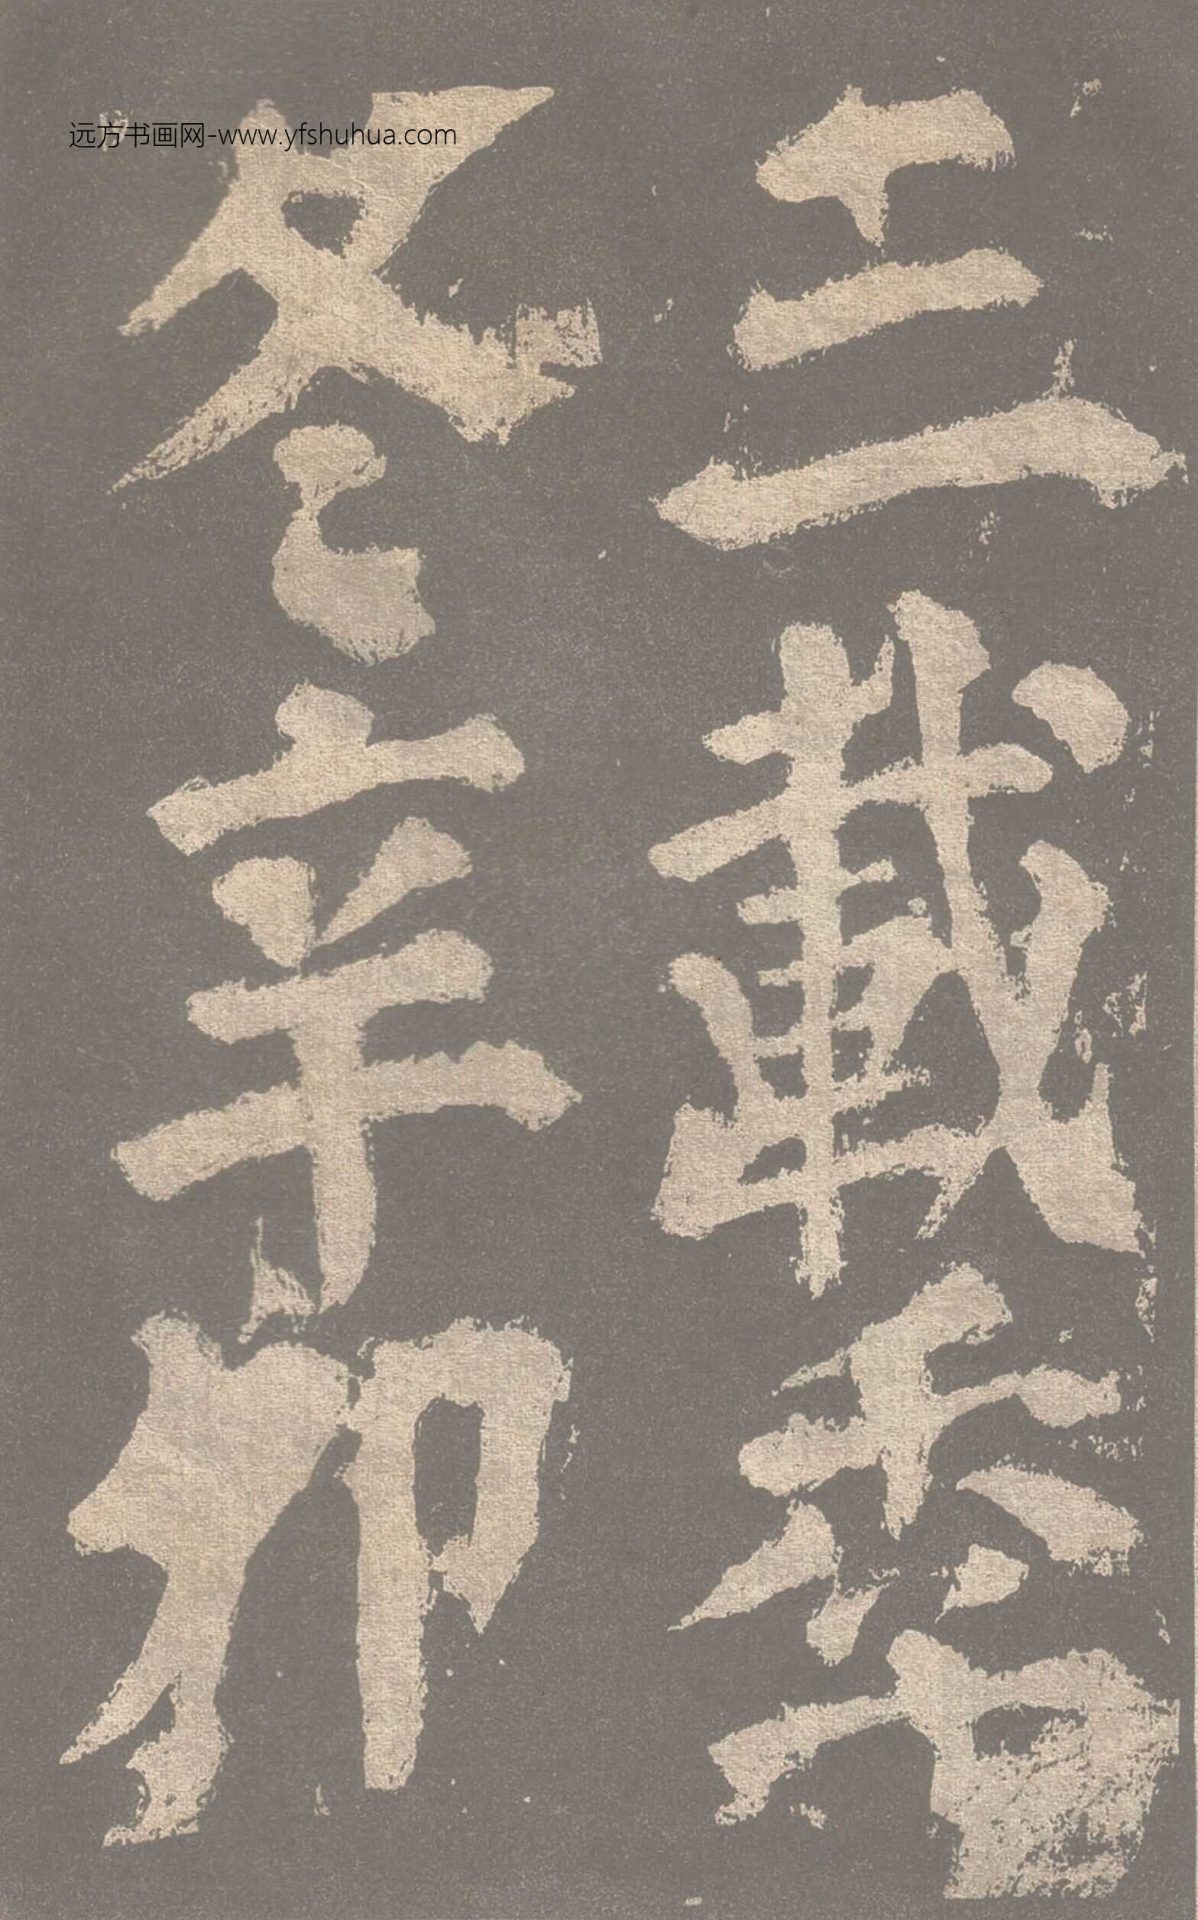 三載季
冬辛卯
远方书画网-www.yfshuhua.com